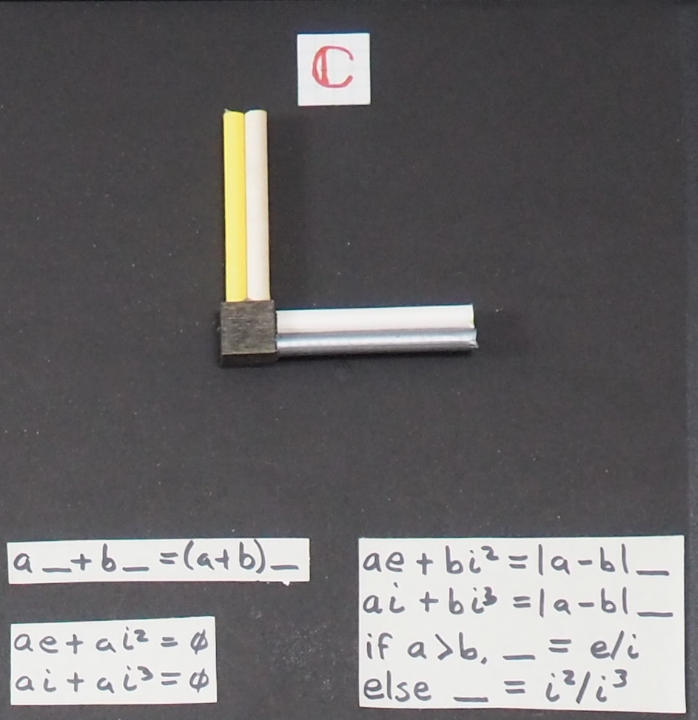 ℂ
a _ + b _ = (a+b) _
ae + ai² = ∅
ai + ai³ = ∅
ae + bi² = |a-b| _
ai + bi³ = |a-b| _
if a>b, _ = e/i
else _ = i²/i³